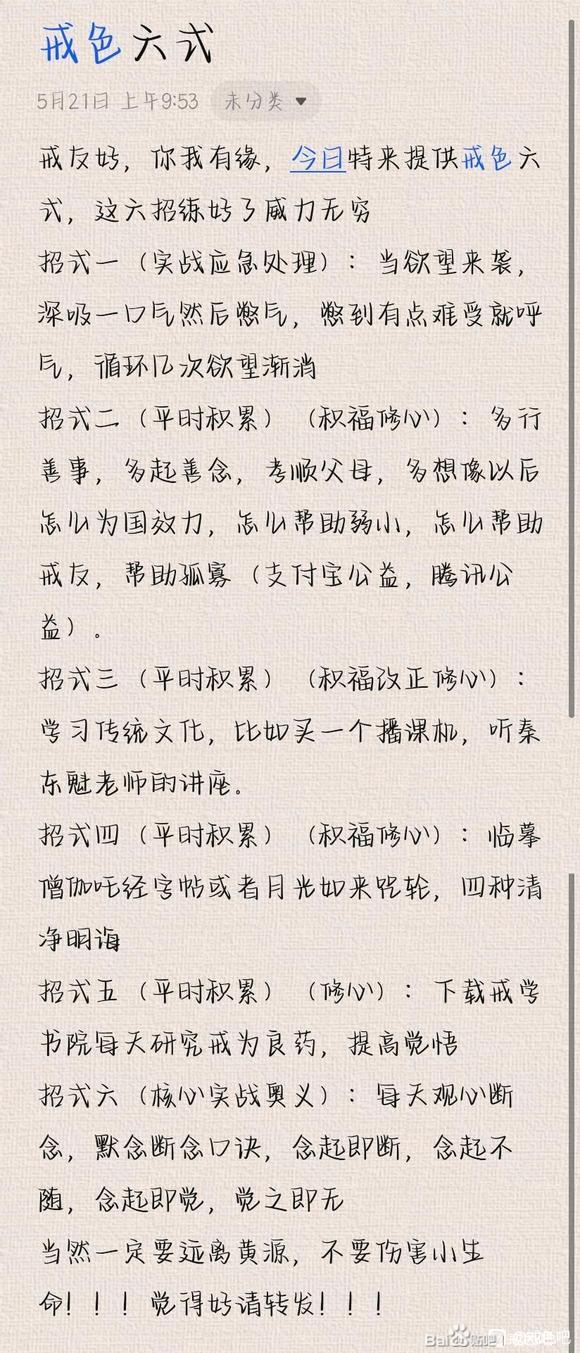 戒色六式
5月21日 上午9:53 未分类
戒友好，你我有缘，今日特来提供戒色六
式，这六招练好了威力无穷
招式一（实战应急处理）：当欲望来袭，
深吸一口气然后憋气，憋到有点难受就呼
气，循环几次欲望渐消
招式二（平时积累）（积福修心）：多行
善事，多起善念，孝顺父母，多想像以后
怎么为国效力，怎么帮助弱小，怎么帮助
戒友，帮助孤寡（支付宝公益，腾讯公
益）。
招式三（平时积累）（积福改正修心）：
学习传统文化，比如买一个播课机，听秦
东魁老师的讲座。
招式四（平时积累）（积福修心）：临摹
僧伽吒经字帖或者月光如来咒轮，四种清
净明诲
招式五（平时积累）（修心）：下载戒学
书院每天研究戒为良药，提高觉悟
招式六（核心实战奥义）：每天观心断
念，默念断念口诀，念起即断，念起不
随，念起即觉，觉之即无
当然一定要远离黄源，不要伤害小生
命！！！觉得好请转发！！！
Bai贴吧